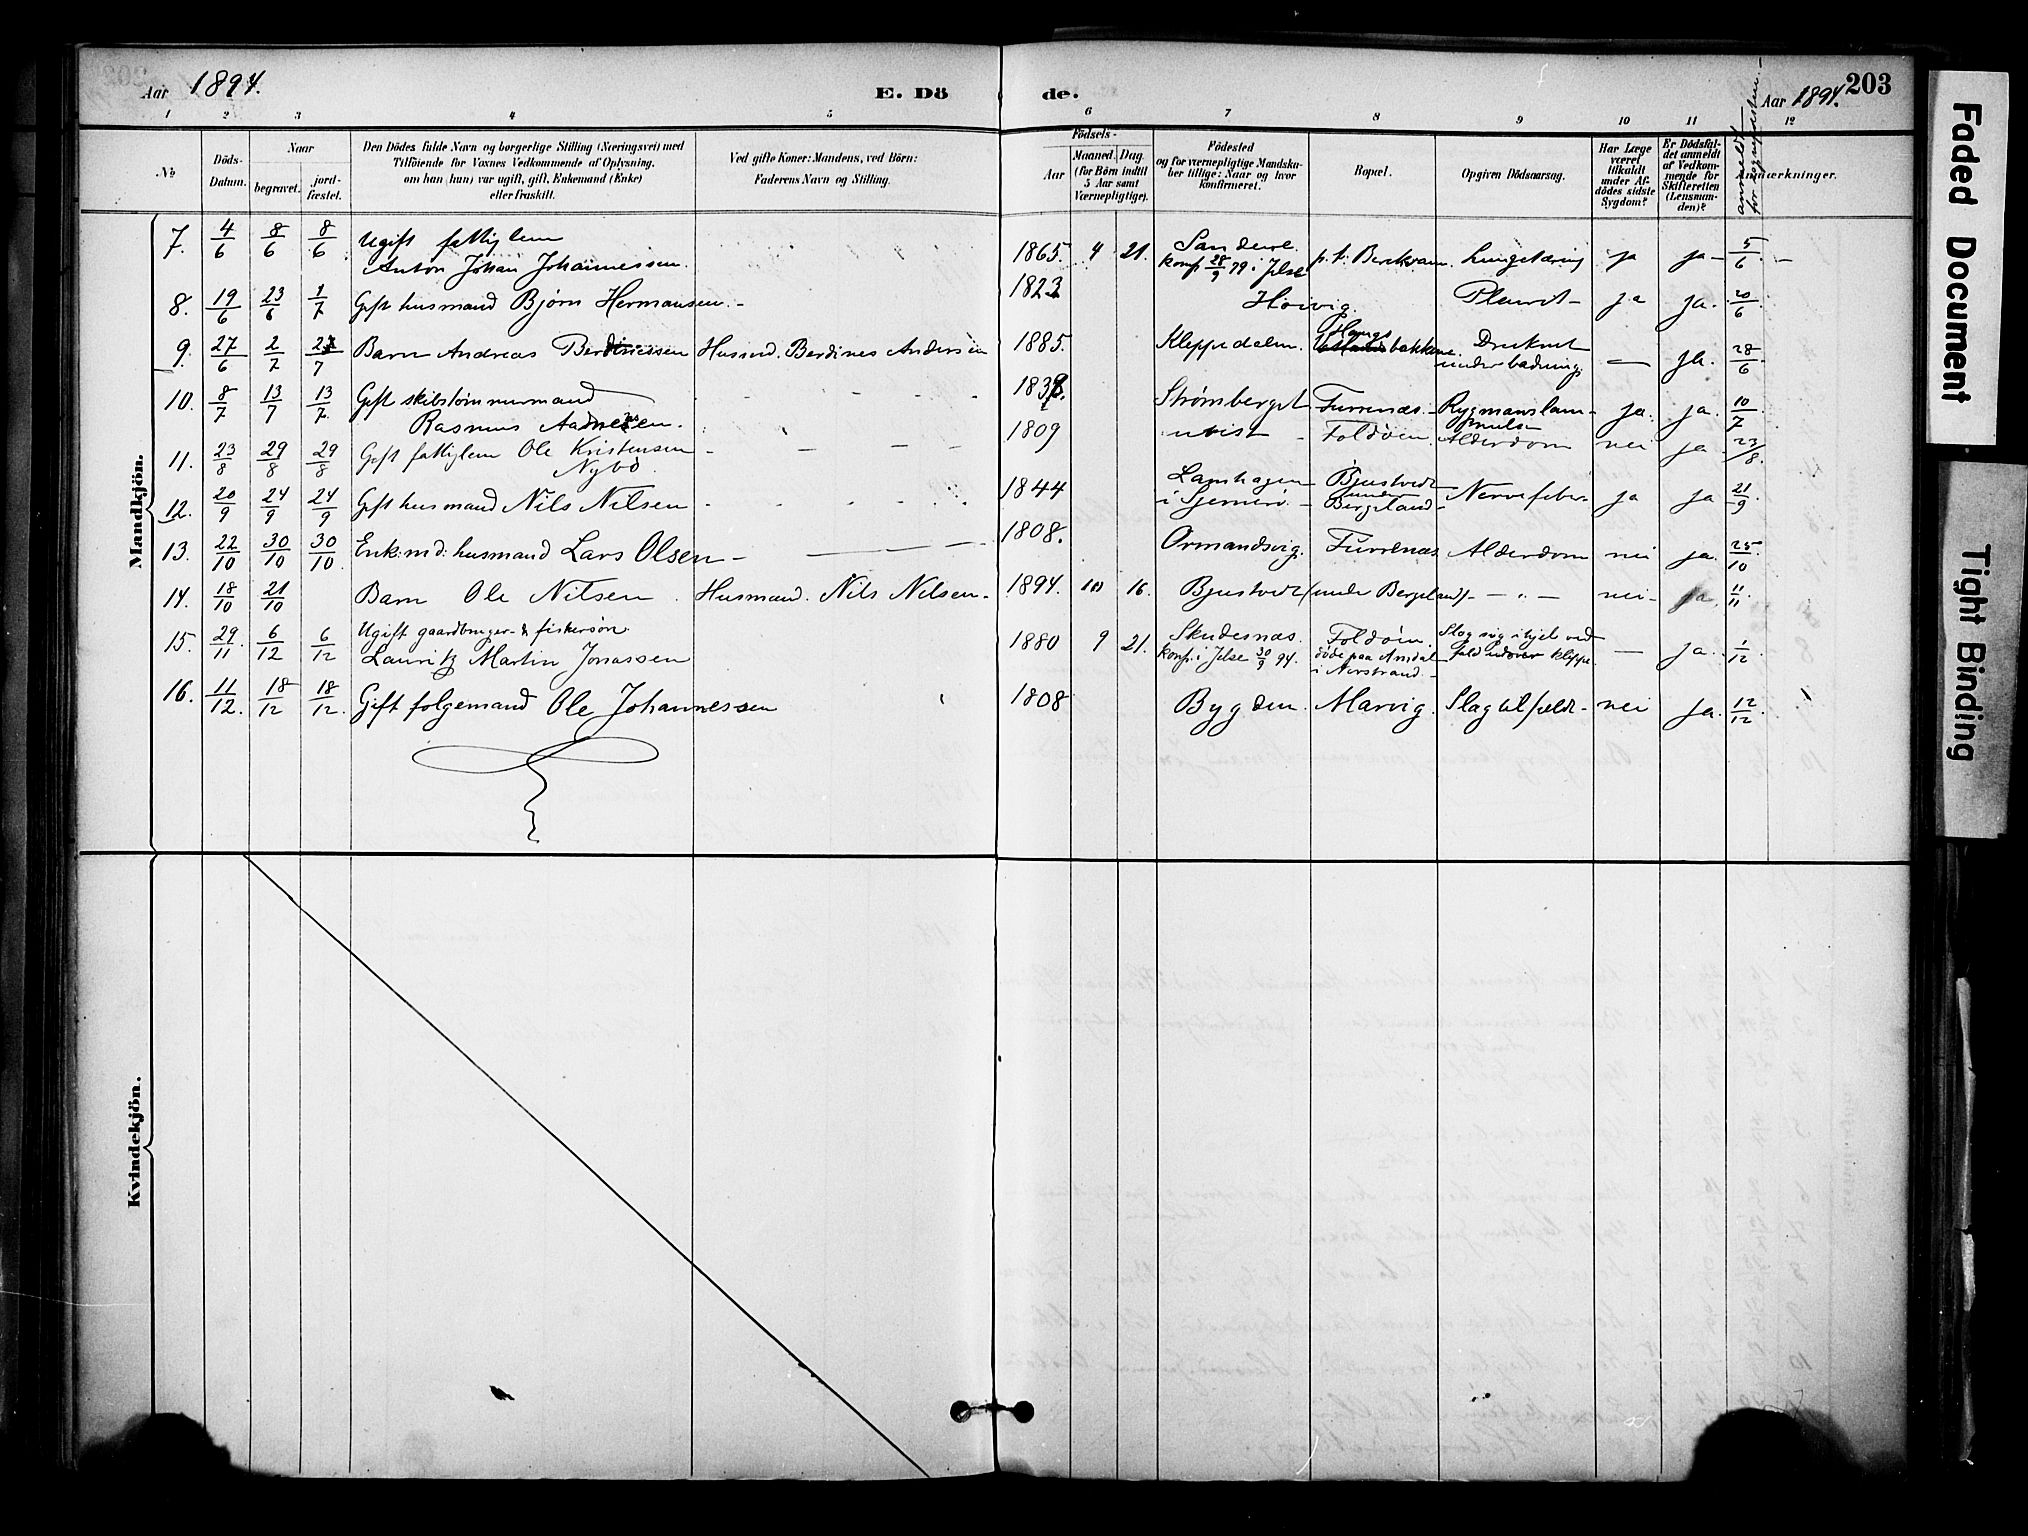 Aar 1894. E. Dö de. Aar 1894. 203
1 2 3 4 5 6 7 8 9 10 11 12
№ Döds-Datum. Naar begravet. jord-fæstet. Den Dödes fulde Navn og borgerlige Stilling (Næringsvei) med Tilföiende for Voxnes Vedkommende af Oplysning, om han (hun) var ugift, gift, Enkemand (Enke) eller fraskilt. Ved gifte Koner: Mandens, ved Börn: Faderens Navn og Stilling. Födsels- Aar Maaned. Dag. (for Börn indtil 5 Aar samt Værnepligtige). Födested og for værnepligtige Mandskaber tillige: Naar og hvor konfirmeret. Bopæl. Opgiven Dödsaarsag. Har Læge været tilkaldt under Afdödes sidste Sygdom? Er Dödsfaldet anmeldt af Vedkommende for Skifteretten (Lensmanden)? Anmærkninger.
Mandkjön.
7. 4/6 8/6 8/6 Ugift fattiglem
Anton Johan Johannessen. 1865 4 21. Sandeid
konf. 28/9 79 i Jelse p.t. Berekvam. Lungetæring ja ja 5/6
8. 19/6 23/6 1/7 Gift husmand Bjørn Hermansen. 1823 Høivig. Pleurit ja ja. 20/6
9. 27/6 2/7 Barn Andreas Berdinessen Husmd. Berdines Andersen 1885. Kleppedalen. bakkene. Druknet
under badning. — ja. 28/6
10. 8/7 13/7 13/7 Gift skibstømmermand
Rasmus Strømberget Furrenæs. Rygmarvslam- ja. ja. 10/7
11. 23/8 29/8 29/8 Gift fattiglem Ole Kristensen
Nybø. 1809 uvist Foldøien Alderdom nei ja 23/8.
12. 20/9 24/9 24/9 Gift husmand Nils Nilsen 1844 Lamhagen
i Sjernerø. Bjustvedt
under
Bergeland Nervefeber ja ja 21/9
13. 22/10 30/10 30/10 Enk:md: husmand Lars Olsen 1808. Ormandsvig. Furrenæs Alderdom nei ja. 25/10
14. 18/10 21/10 Barn Ole Nilsen. Husmand. Nils Nilsen. 1894. 10 16. Bjustvedt (under Bergeland) — " — nei ja. 11/11
15. 29/11 6/12 6/12 Ugift gaardbruger- & fiskersøn
Lauritz Martin Jonassen 1880 9 21. Skudesnæs.
konf. i Jelse 30/9 94. Foldøien
døde paa Amdal
i Nerstrand Slog sig ihjel ved
fald udover klippe. — ja. 1/12
16. 11/12. 18/12 18/12. Gift folgemand Ole Johannessen 1808 Bygden. Marvig. Slagtilfældt nei ja. 12/12
Kvindekjön.
Faded Document
Tight Binding